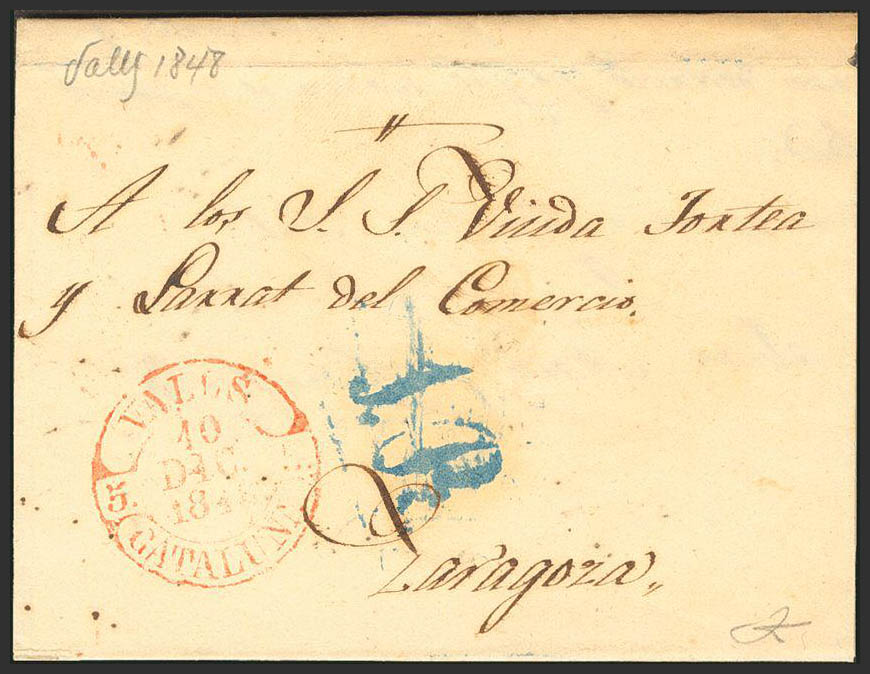 Valls 1848
A los S. S. Viuda Jortea
y Parrat del Comercio.
VALLS
10
DIC.
184
5
CATALUÑA
Zaragoza